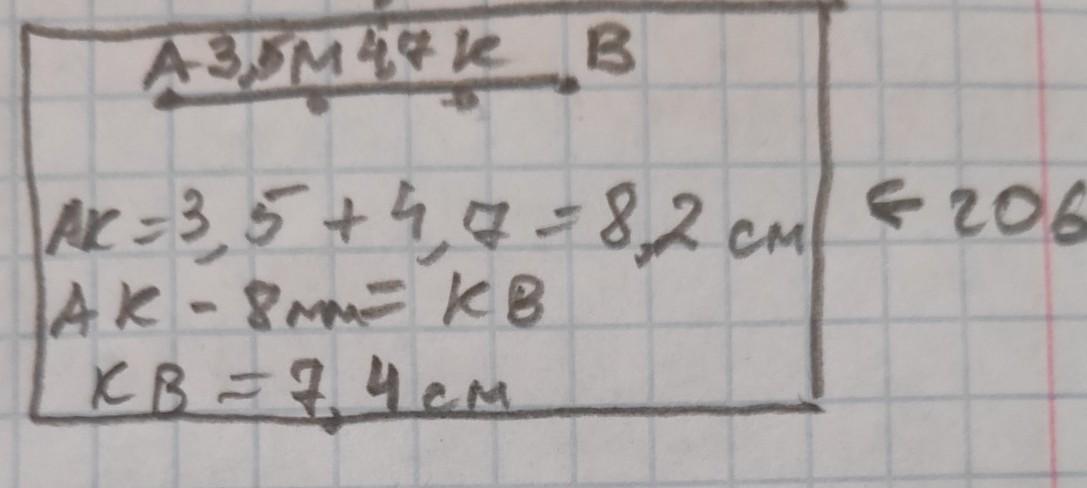 А 3,5 М 4,7 К В
АК = 3,5 + 4,7 = 8,2 см
← 206
АК - 8мм = КВ
КВ = 7,4 см